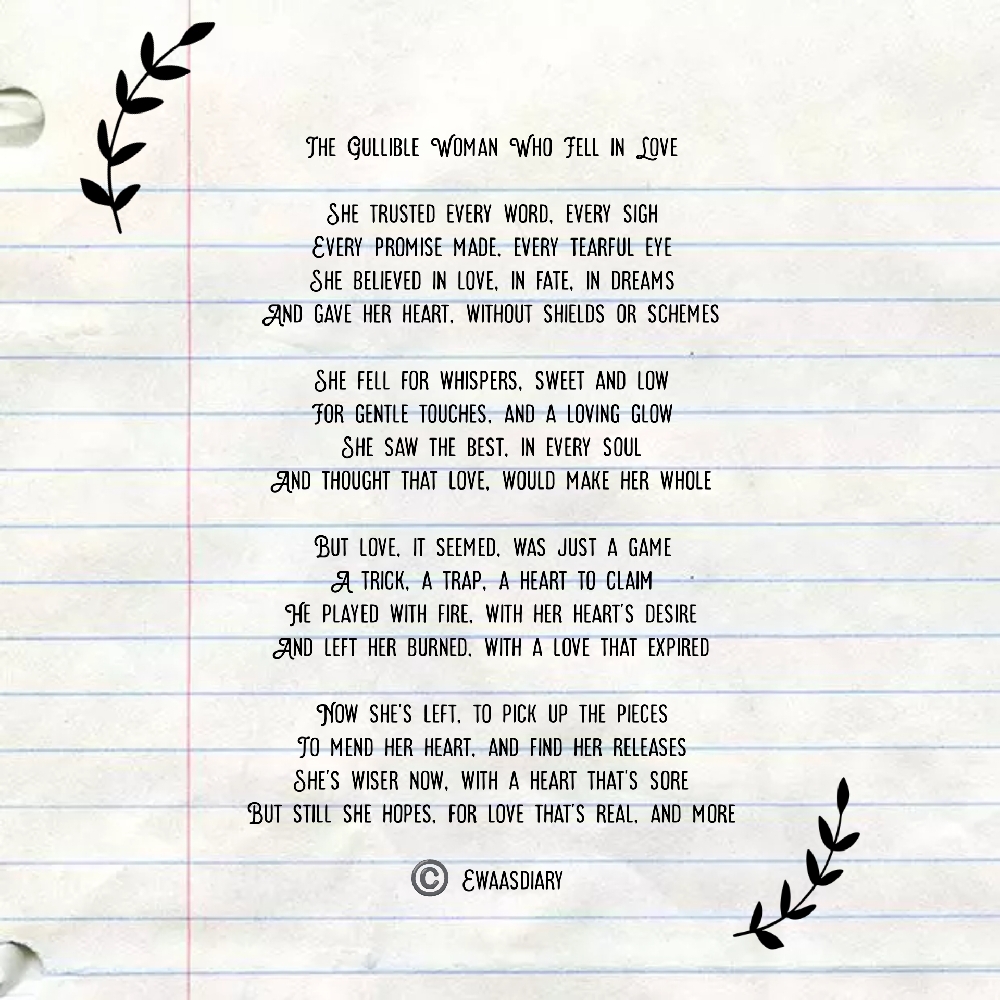 The Gullible Woman Who Fell in Love
She trusted every word, every sigh
Every promise made, every tearful eye
She believed in love, in fate, in dreams
And gave her heart, without shields or schemes
She fell for whispers, sweet and low
For gentle touches, and a loving glow
She saw the best, in every soul
And thought that love, would make her whole
But love, it seemed, was just a game
A trick, a trap, a heart to claim
He played with fire, with her heart's desire
And left her burned, with a love that expired
Now she's left, to pick up the pieces
To mend her heart, and find her releases
She's wiser now, with a heart that's sore
But still she hopes, for love that's real, and more
© Ewaasdiary